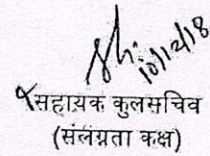 10/12/18
सहायक कुलसचिव
(संलग्नता कक्ष)